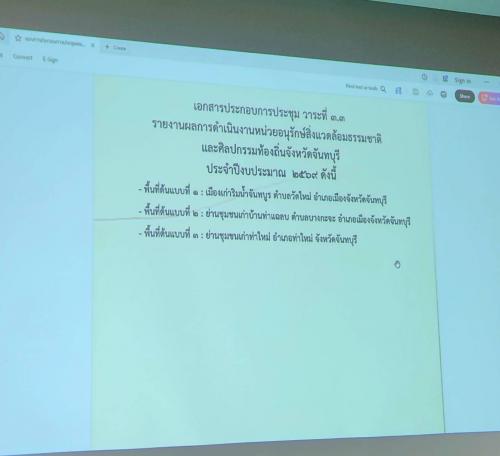 + Create
Convert E-Sign
Sign in
Find text or tools
Share
เอกสารประกอบการประชุม วาระที่ ๓.๓
รายงานผลการดำเนินงานหน่วยอนุรักษ์สิ่งแวดล้อมธรรมชาติ
และศิลปกรรมท้องถิ่นจังหวัดจันทบุรี
ประจำปีงบประมาณ ๒๕๖๙ ดังนี้
- พื้นที่ต้นแบบที่ ๑ : เมืองเก่าริมน้ำจันทบูร ตำบลวัดใหม่ อำเภอเมืองจังหวัดจันทบุรี
- พื้นที่ต้นแบบที่ ๒ : ย่านชุมชนเก่าบ้านท่าแฉลบ ตำบลบางกะจะ อำเภอเมืองจังหวัดจันทบุรี
- พื้นที่ต้นแบบที่ ๓ : ย่านชุมชนเก่าท่าใหม่ อำเภอท่าใหม่ จังหวัดจันทบุรี